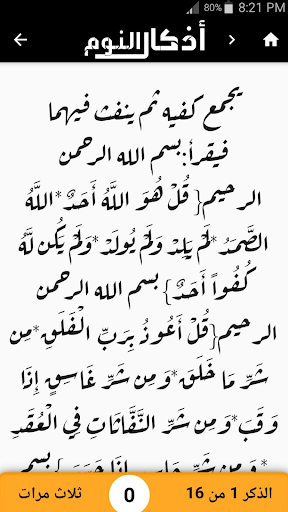 80% 8:21 PM
أذكار النوم
يجمع كفيه ثم ينفث فيهما
فيقرأ:بسم الله الرحمن
الرحيم{ قُلْ هُوَ اللَّهُ أَحَدٌ*اللَّهُ
الصَّمَدُ*لَمْ يَلِدْ وَلَمْ يُولَدْ*وَلَمْ يَكُن لَّهُ
كُفُواً أَحَدٌ}بسم الله الرحمن
الرحيم{قُلْ أَعُوذُ بِرَبِّ الْفَلَقِ*مِن
شَرِّ مَا خَلَقَ*وَمِن شَرِّ غَاسِقٍ إِذَا
وَقَبَ*وَمِن شَرِّ النَّفَّاثَاتِ فِي الْعُقَدِ
*وَمِن شَرِّ حَاسِدٍ إِذَا حَسَدَ}بسم
الذكر 1 من 16
0
ثلاث مرات